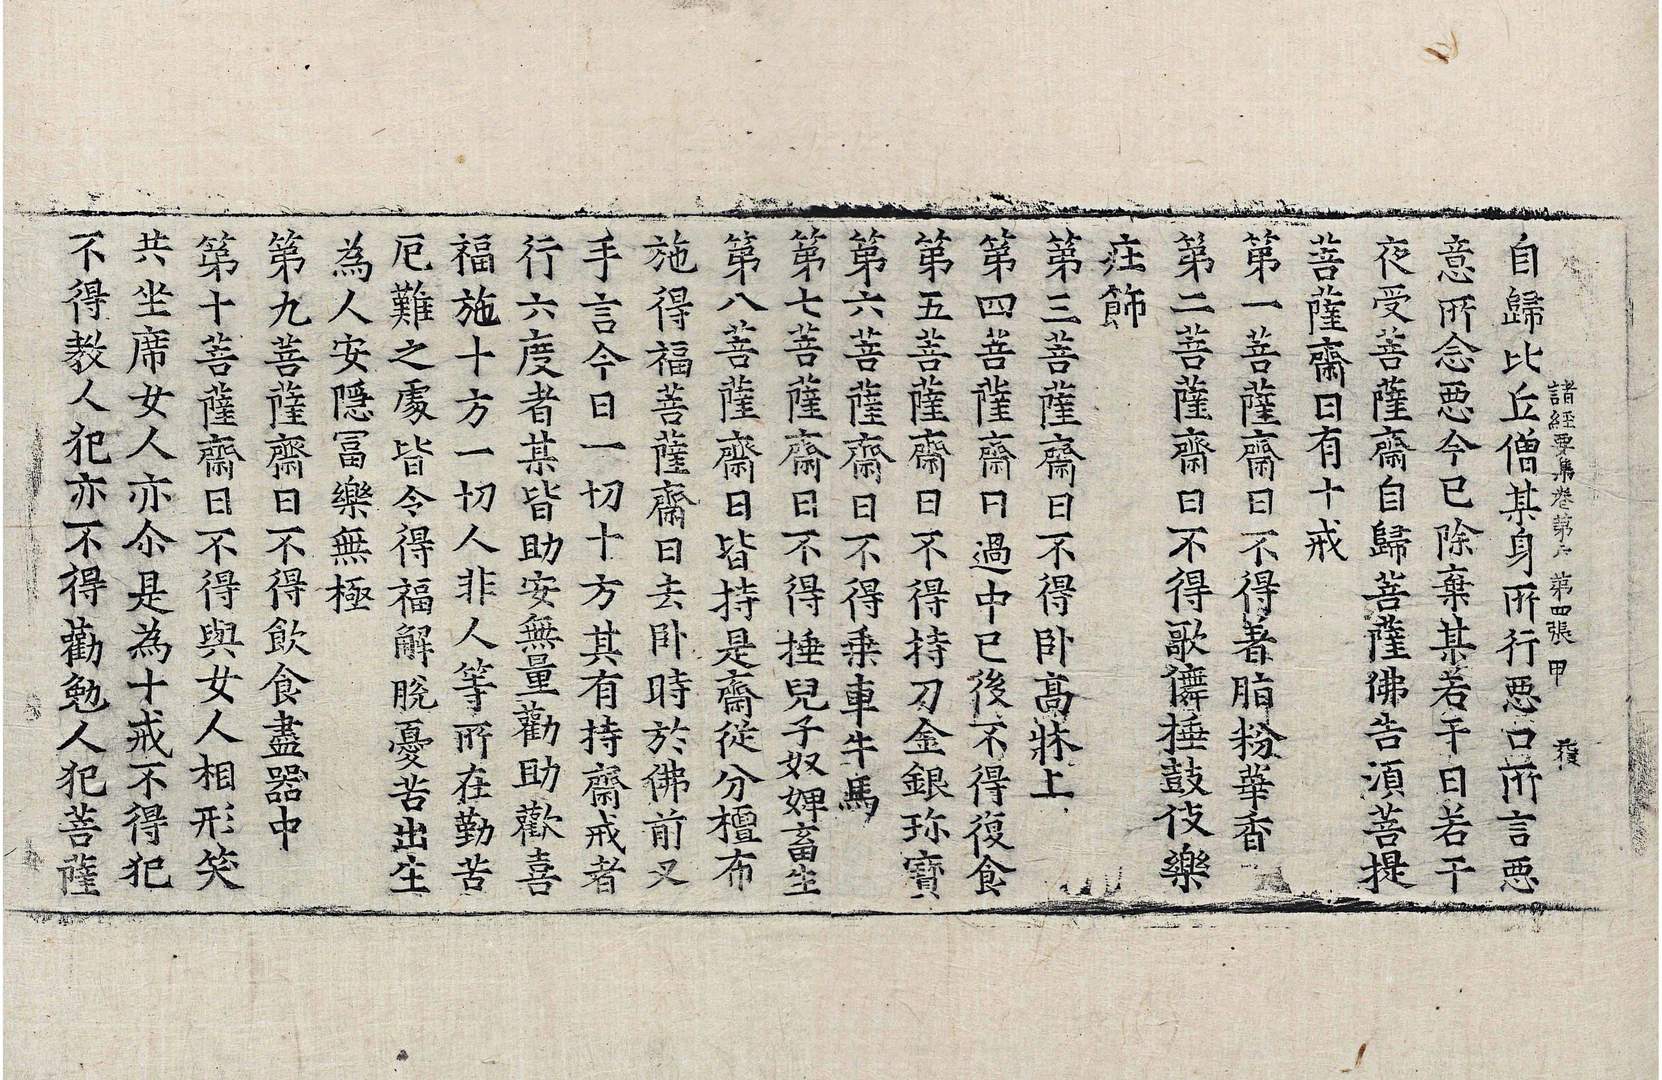 諸經要集卷第六　第四張　甲
自歸比丘僧某身所行惡口所言惡
意所念惡今已除棄某若干日若干
夜受菩薩齋自歸菩薩佛告湏菩提
菩薩齋日有十戒
第一菩薩齋日不得著脂粉華香
第二菩薩齋日不得歌儛捶鼓伎樂
莊飾
第三菩薩齋日不得卧高牀上
第四菩薩齋日過中已後不得復食
第五菩薩齋日不得持刀金銀珎寶
第六菩薩齋日不得乗車牛馬
第七菩薩齋日不得捶兒子奴婢畜生
第八菩薩齋日皆持是齋從分檀布
施得福菩薩齋日去卧時於佛前叉
手言今日一切十方其有持齋戒者
行六度者某皆助安無量勸助歡喜
福施十方一切人非人等所在勤苦
厄難之處皆令得福解脫憂苦出生
為人安隱冨樂無極
第九菩薩齋日不得飲食盡器中
第十菩薩齋日不得與女人相形笑
共坐席女人亦尒是為十戒不得犯
不得教人犯亦不得勸勉人犯菩薩